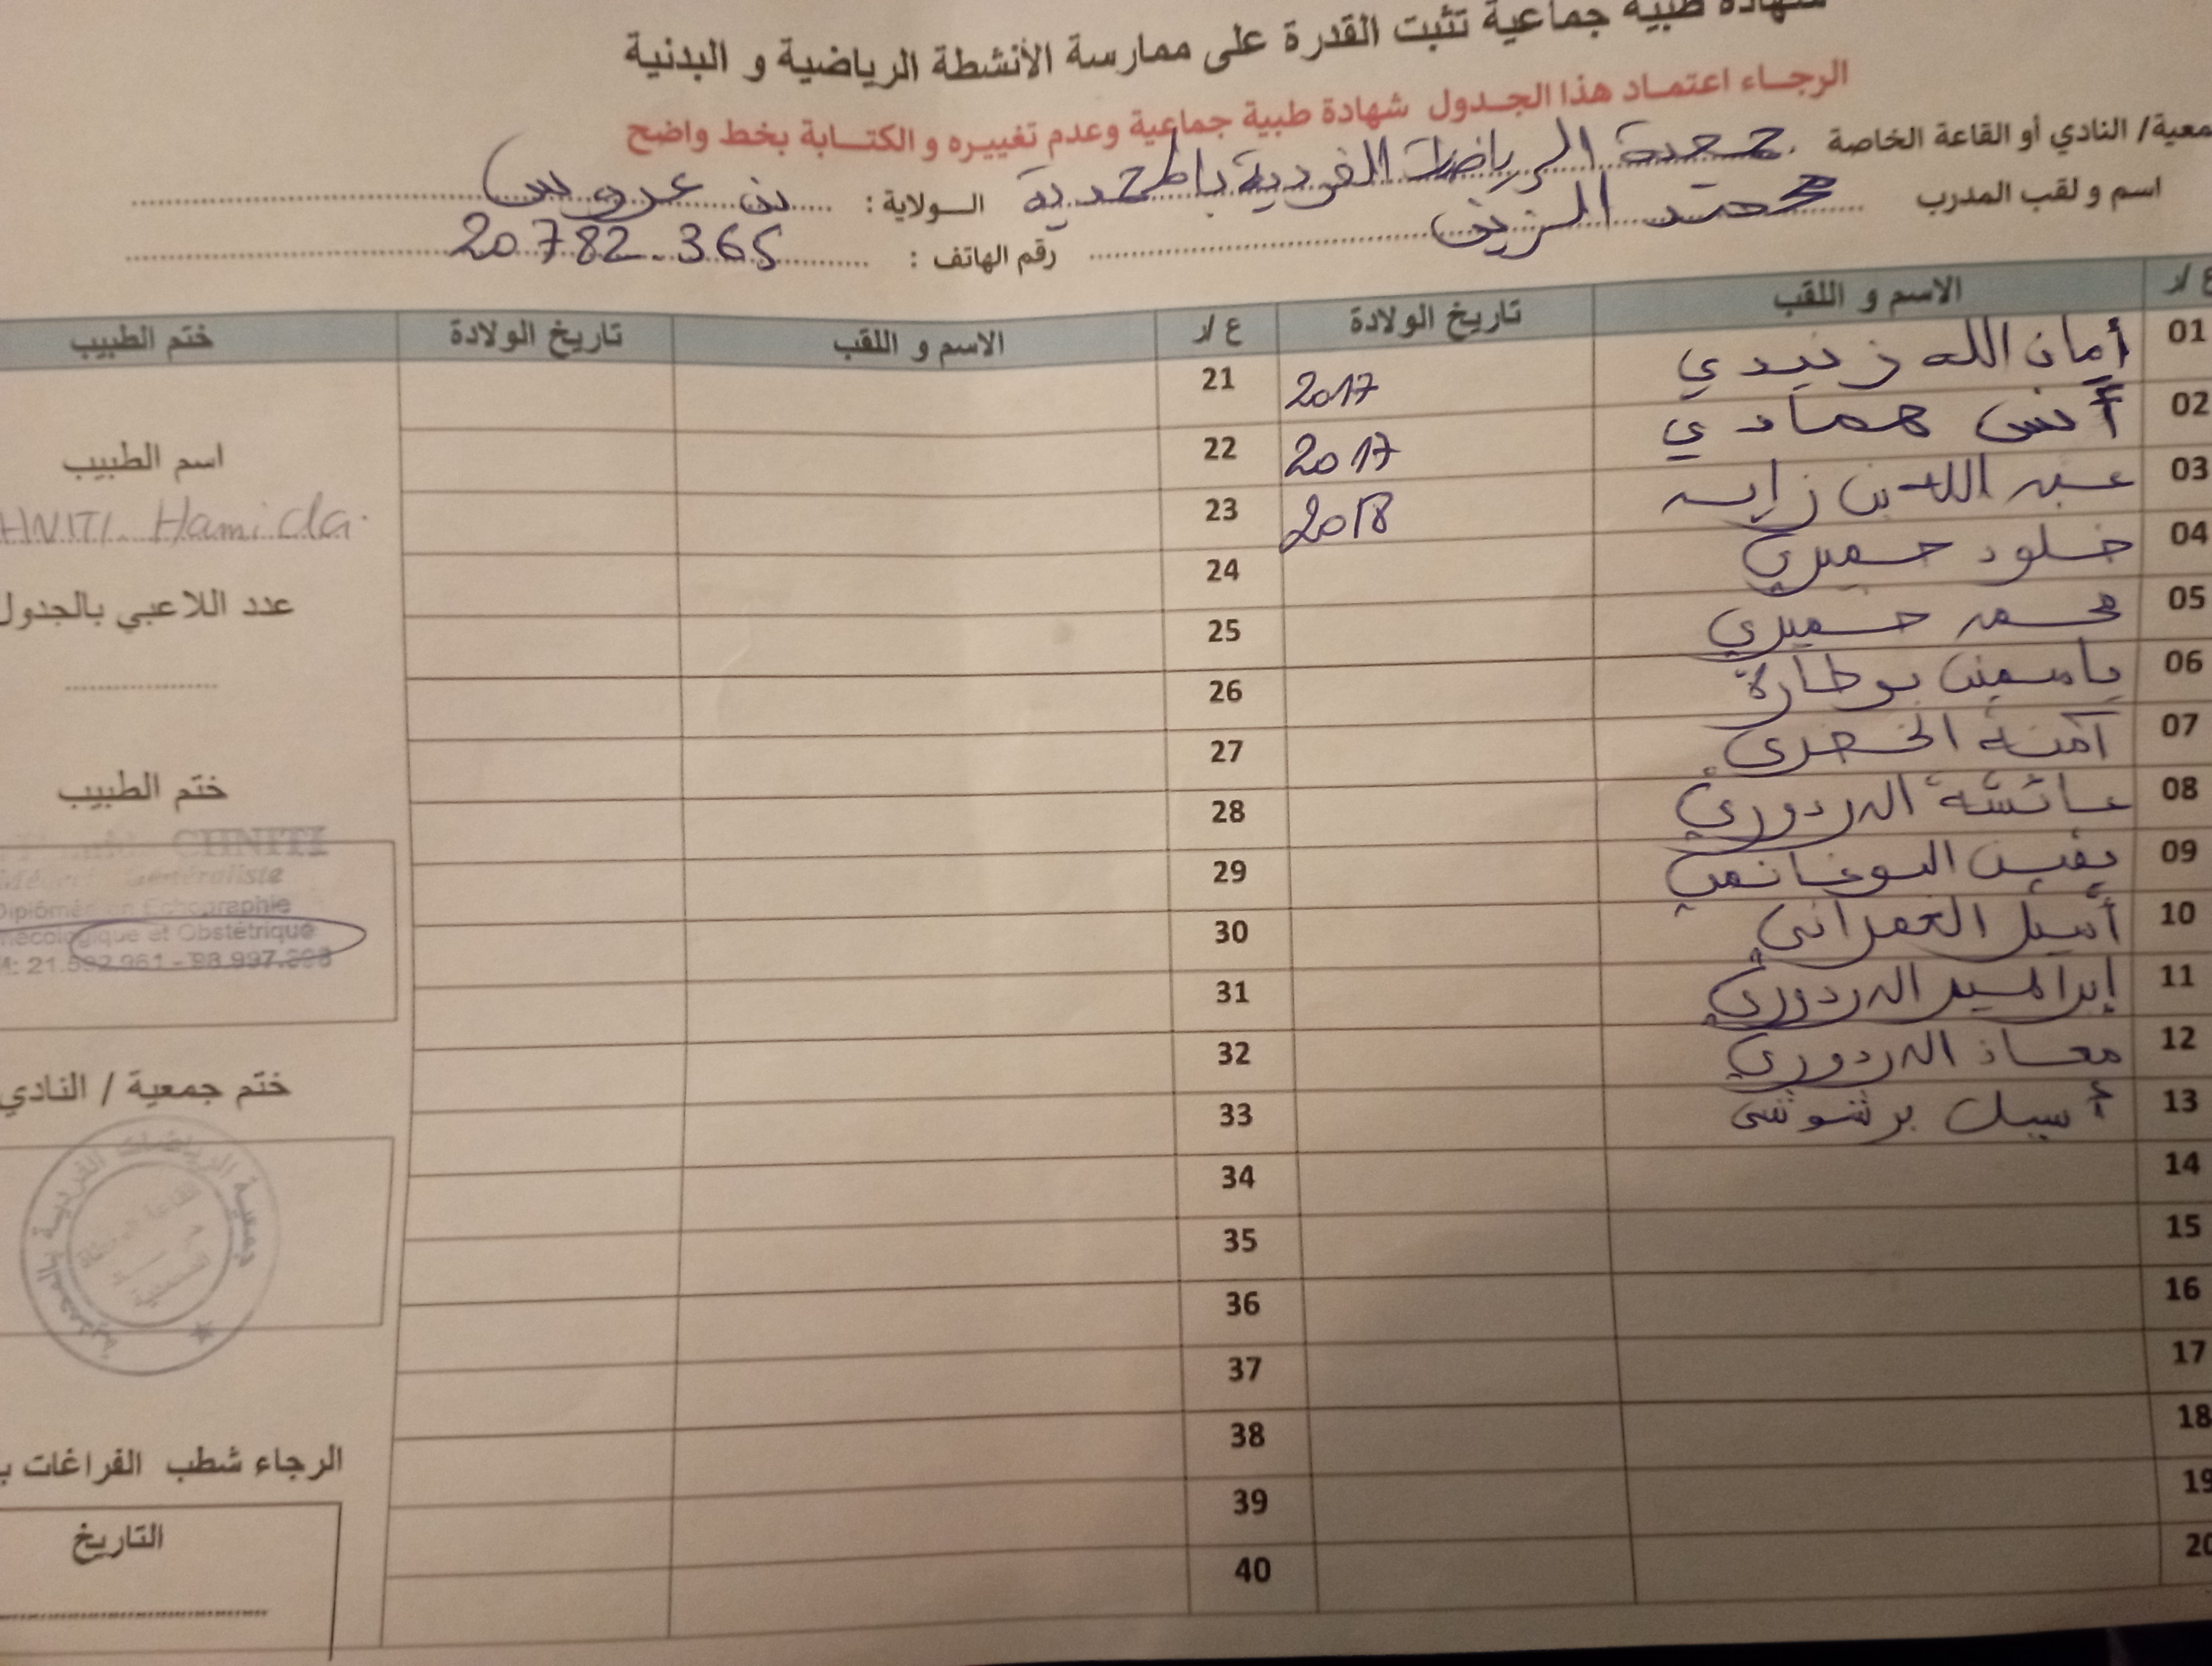 شهادة طبية جماعية تثبت القدرة على ممارسة الأنشطة الرياضية و البدنية
الرجاء اعتماد هذا الجدول شهادة طبية جماعية وعدم تغييره و الكتابة بخط واضح
معية/ النادي أو القاعة الخاصة جمعية الرياضات الفردية بالمحمدية الولاية : بن عروس
اسم و لقب المدرب محمد الزين رقم الهاتف : 20782.365
ع/ر الاسم و اللقب تاريخ الولادة ع/ر الاسم و اللقب تاريخ الولادة ختم الطبيب
01 أمان الله زنيدي 2017 21
02 أنس همادي 2017 22
03 عبد الله بن زايد 2018 23
04 خلود حميري 24
05 محمد حميري 25
06 ياسمين بوطارة 26
07 آمنة 27
08 عائشة الدردوري 28
09 يقين البوغانمي 29
10 أسيل العمراني 30
11 إبراهيم الدردوري 31
12 معاذ الدردوري 32
13 أسيل برشوشي 33
14 34
15 35
16 36
17 37
18 38
19 39
20 40
اسم الطبيب
HNITI. Hamida
عدد اللاعبي بالجدول
ختم الطبيب
CHNITI
Généraliste
Diplômé en Echographie
nécologique et Obstétrique
ختم جمعية / النادي
جمعية الرياضات الفردية بالمحمدية
الرجاء شطب الفراغات ب
التاريخ